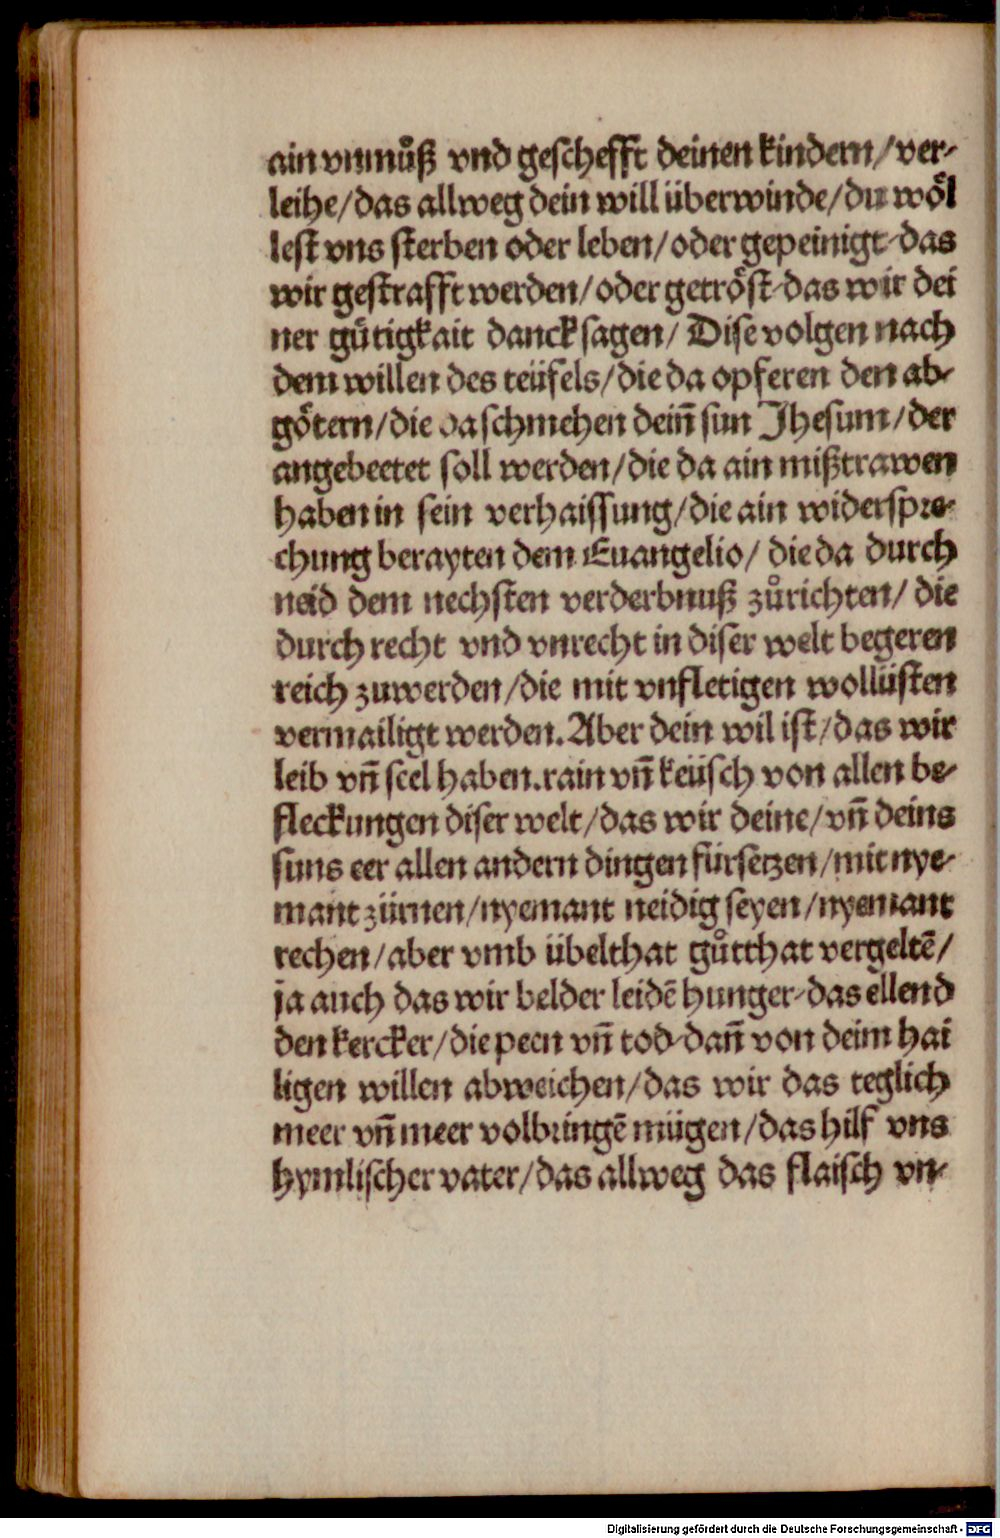 ain vnmuͦß vnd geschefft deinen kindern/ver-
leihe/das allweg dein will überwinde/du woͤl
lest vns sterben oder leben/oder gepeinigt-das
wir gestrafft werden/oder getroͤst-das wir dei
ner guͤtigkait dancksagen/ Dise volgen nach
dem willen des teüfels/die da opferen den ab-
goͤtern/die da schmehen dein̄ sun Jhesum/der
angebeetet soll werden/die da ain mißtrawen
haben in sein verhaissung/die ain widerspre-
chung berayten dem Euangelio/ die da durch
neid dem nechsten verderbnuß zuͦrichten/ die
durch recht vnd vnrecht in diser welt begeren
reich zuwerden/die mit vnfletigen wollüsten
vermailigt werden. Aber dein wil ist/das wir
leib vn̄ seel haben.rain vn̄ keüsch von allen be-
fleckungen diser welt/das wir deine/vn̄ deins
suns eer allen andern dingen fürsetzen/mit nye-
mant zürnen/nyemant neidig seyen/nyemant
rechen/aber vmb übelthat guͦtthat vergeltē/
ja auch das wir belder leidē hunger-das ellend
den kercker/die peen vn̄ tod-dan̄ von deim hai
ligen willen abweichen/das wir das teglich
meer vn̄ meer volbringē mügen/das hilf vns
hymlischer vater/das allweg das flaisch vn-
Digitalisierung gefördert durch die Deutsche Forschungsgemeinschaft - DFG